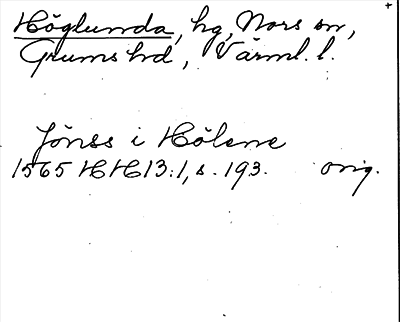 Höglunda, hg, Nors sn,
Grums hd, Värml. l.
Jönss i Hölene
1565 HH13:1, s. 193. orig.